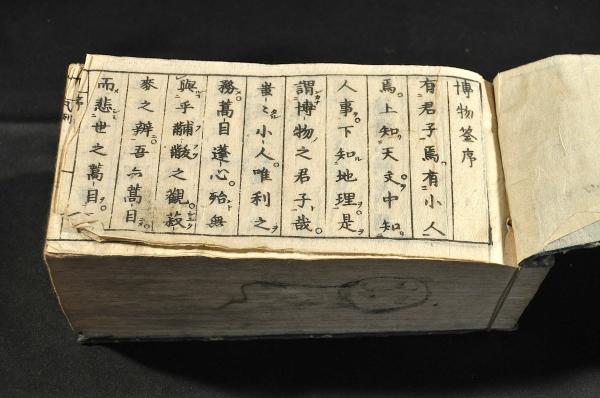 博物筌序
有君子焉有小人
焉上知天文中知
人事下知地理是
謂博物之君子哉
蚩〻小人唯利之
務蒿目蓬心殆無
與乎黼黻之觀菽
麥之辨吾亦蒿目
而悲世之蒿目
序